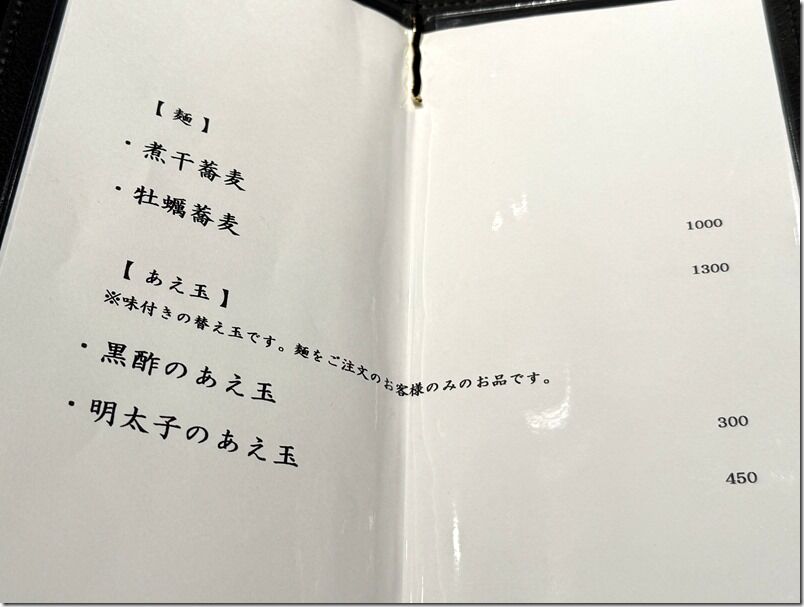 【 麺 】
・煮干蕎麦 1000
・牡蠣蕎麦 1300
【 あえ玉 】
※味付きの替え玉です。麺をご注文のお客様のみのお品です。
・黒酢のあえ玉 300
・明太子のあえ玉 450